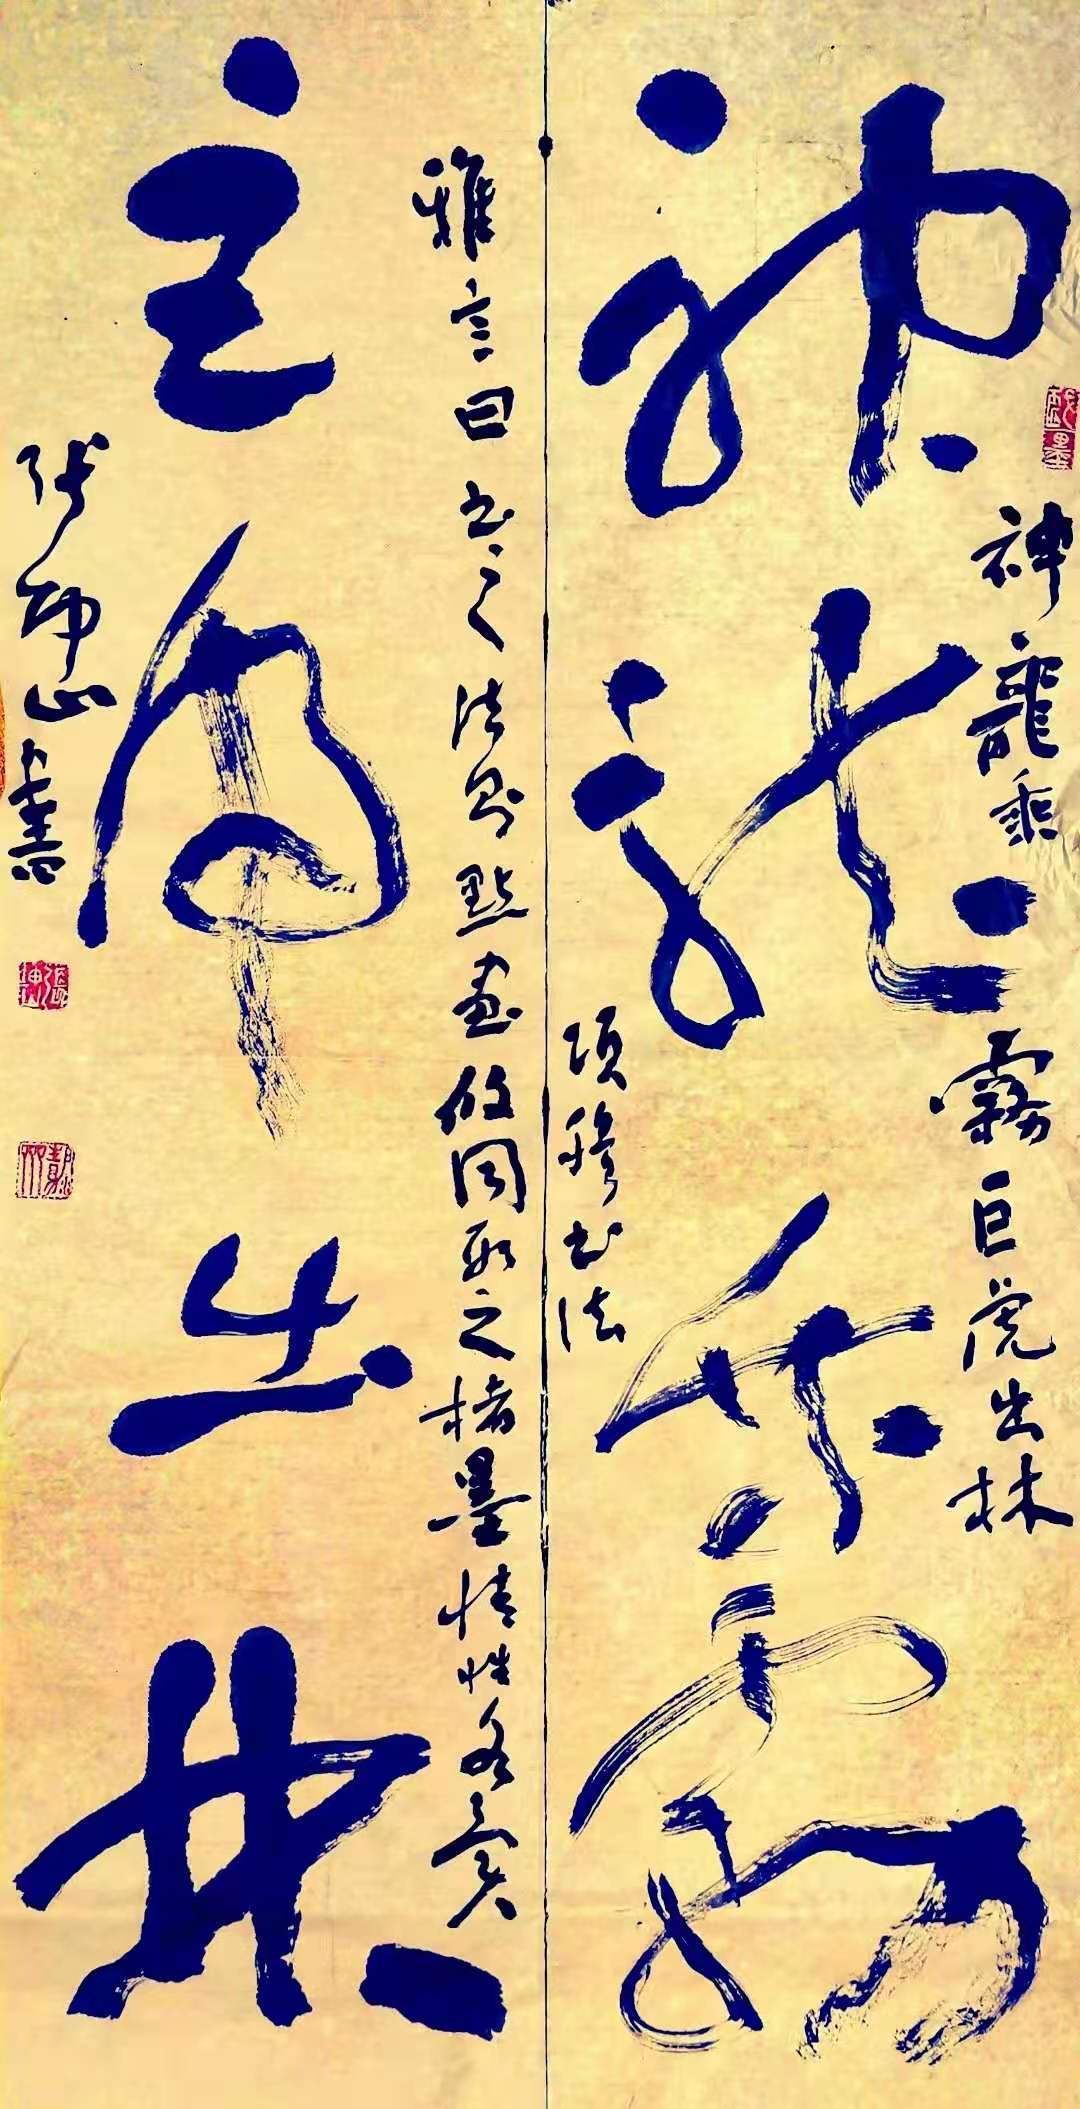 神龍乘霧巨虎出林
神龍乘霧
項穆書法
雅言曰書之法則點畫攸同形之楮墨情性各異
巨虎出林
張坤山書